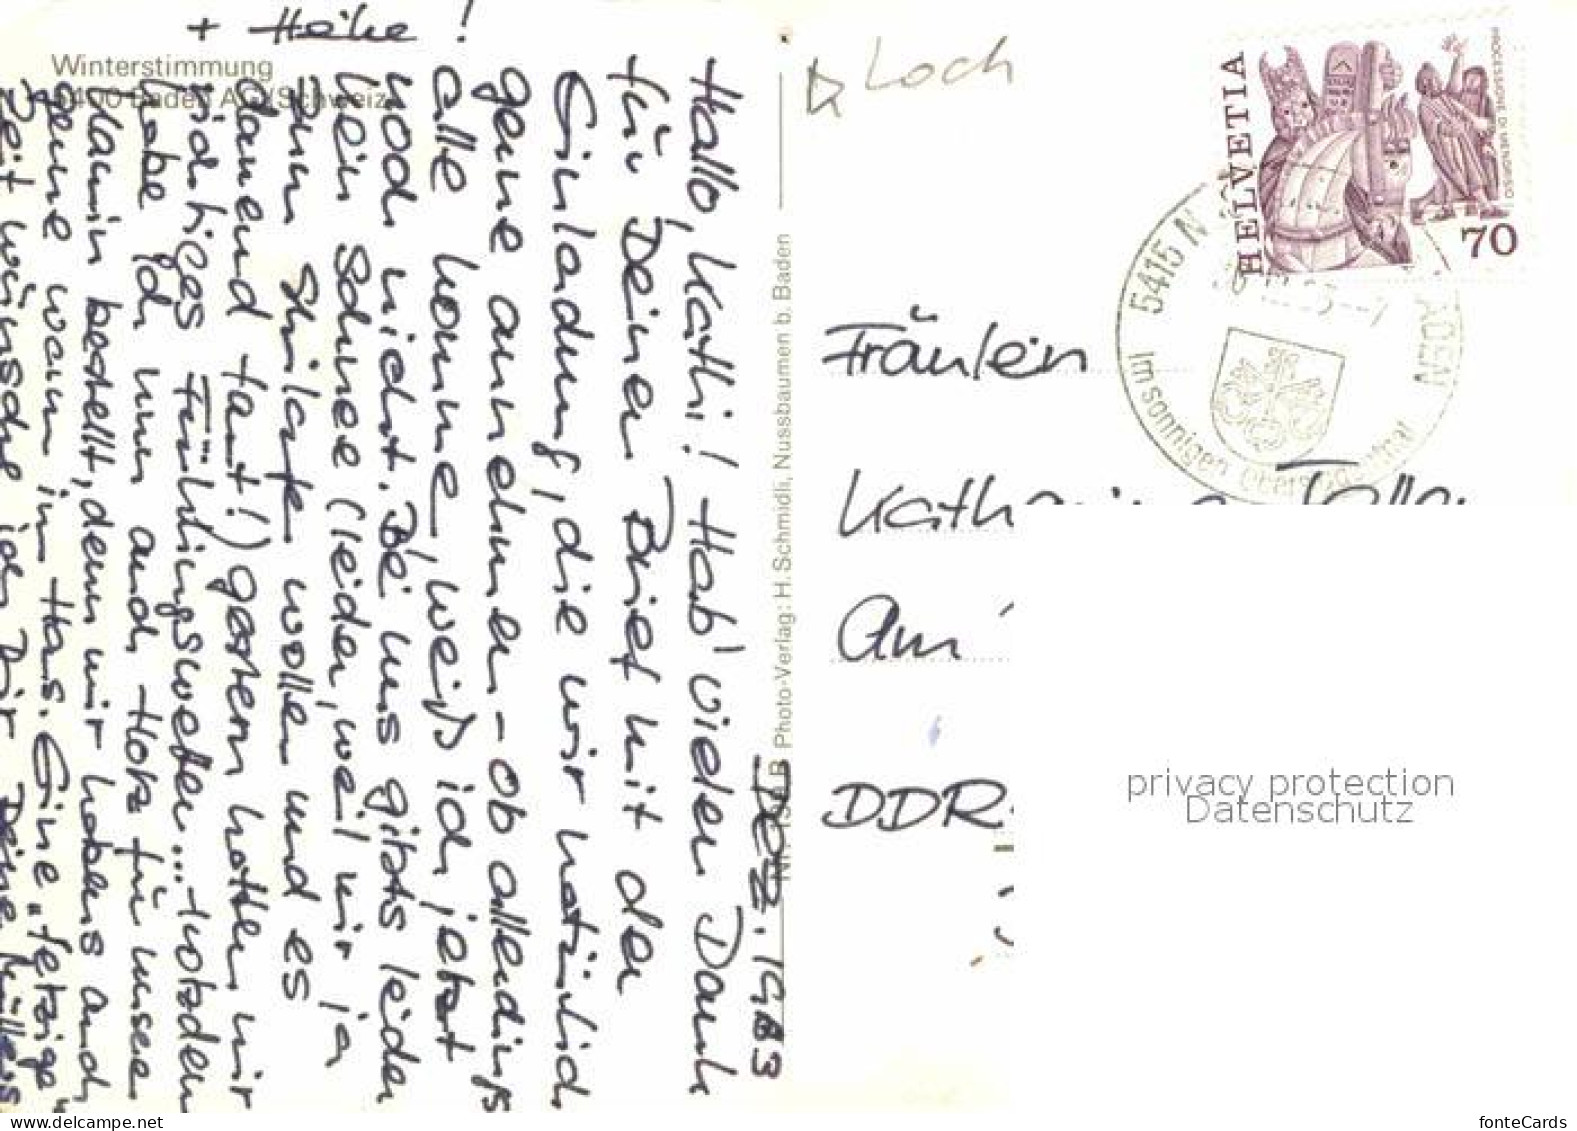 Winterstimmung
5400 Baden AG/Schweiz
+ Heike !
Dez. 1983
Hallo, Kathi! Hab' vielen Dank
für Deinen Brief mit der
Einladung, die wir natürlich
gerne annehmen - ob allerdings
alle komme, weiß ich jetzt
noch nicht. Bei uns gibts leider
kein Schnee (leider, weil wir ja
zum Skilaufen wollen und es
dauernd taut!) gestern hatten wir
richtiges Frühlingswetter... trotzdem
habe ich nun auch Holz für unseren
Kamin bestellt, denn wir habens auch
gerne warm im Haus. Eine „fetzige"
Zeit wünsche ich Dir Deine
Nr. 159 B Photo-Verlag: H. Schmidli, Nussbaumen b. Baden
Loch
HELVETIA
PROCESSIONE DI MENDRISIO
70
5415 N ADEN
Im sonnigen Obersiggenthal
Fräulein
Katharina
Am
DDR
privacy protection
Datenschutz
www.delcampe.net
fonteCards